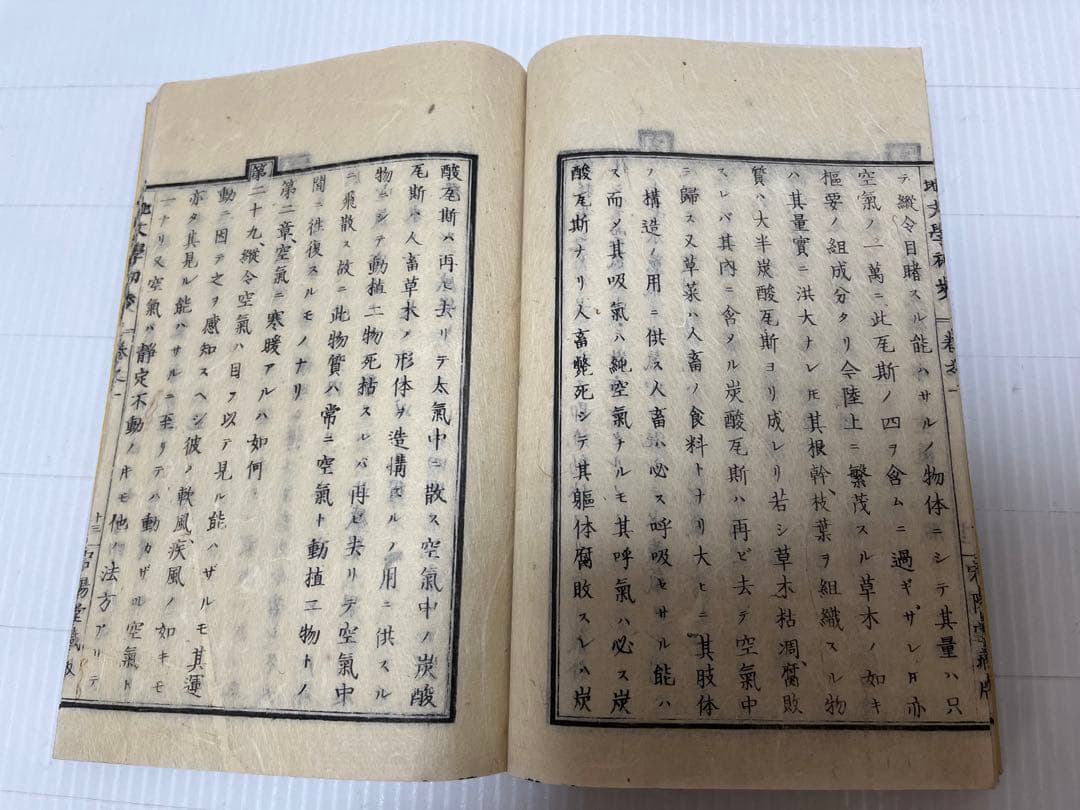 テ縱令目睹スル能ハサルノ物体ニシテ其量ハ只
空氣ノ一萬ニ此瓦斯ノ四ヲ含ムニ過ギザレ𪜈亦
樞要ノ組成分タリ今陸上ニ繁茂スル草木ノ如キ
ハ其量實ニ洪大ナレ𪜈其根幹枝葉ヲ組織スル物
質ハ大半炭酸瓦斯ヨリ成レリ若シ草木枯凋腐敗
スレバ其内ニ含メル炭酸瓦斯ハ再ビ去テ空氣中
ニ歸ス又草菜ハ人畜ノ食料トナリ大ヒニ其肢体
ノ構造ノ用ニ供ス人畜ハ必ス呼吸セサル能ハ
ス而〆其吸氣ハ純空氣ナルモ其呼氣ハ必ス炭
酸瓦斯ナリ人畜斃死シテ其軀体腐敗スレハ炭
酸瓦斯ハ再ヒ去リテ太氣中ニ散ス空氣中ノ炭酸
瓦斯ハ人畜草木ノ形体ヲ造構スルノ用ニ供スル
物ニシテ動植二物死枯スレバ再ビ去リテ空氣中
ニ飛散ス故ニ此物質ハ常ニ空氣ト動植二物トノ
間ニ往復スルモノナリ
第二章、空氣ニ寒暖アルハ如何
第二十九、縱令空氣ハ目ヲ以テ見ル能ハザルモ其運
動ニ因テ之ヲ感知スヘシ彼ノ軟風、疾風ノ如キモ
亦タ其見ル能ハサルニ至リテハ動カザル空氣ト
一ナリ又空氣ハ靜定不動ノ𪜈モ他ノ法方アリテ
地文學初歩 卷之一
十三